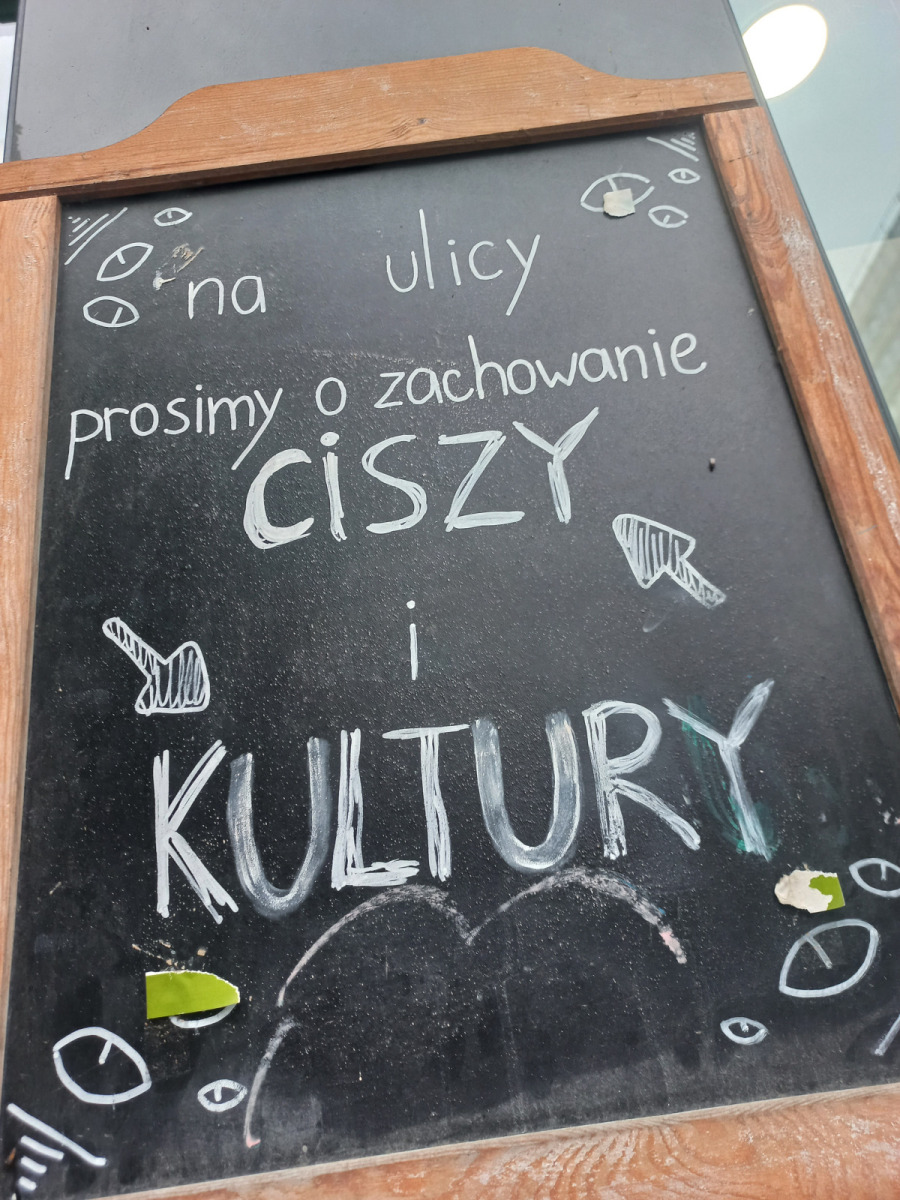 na ulicy
prosimy o zachowanie
CiSZY
i
KULTURY